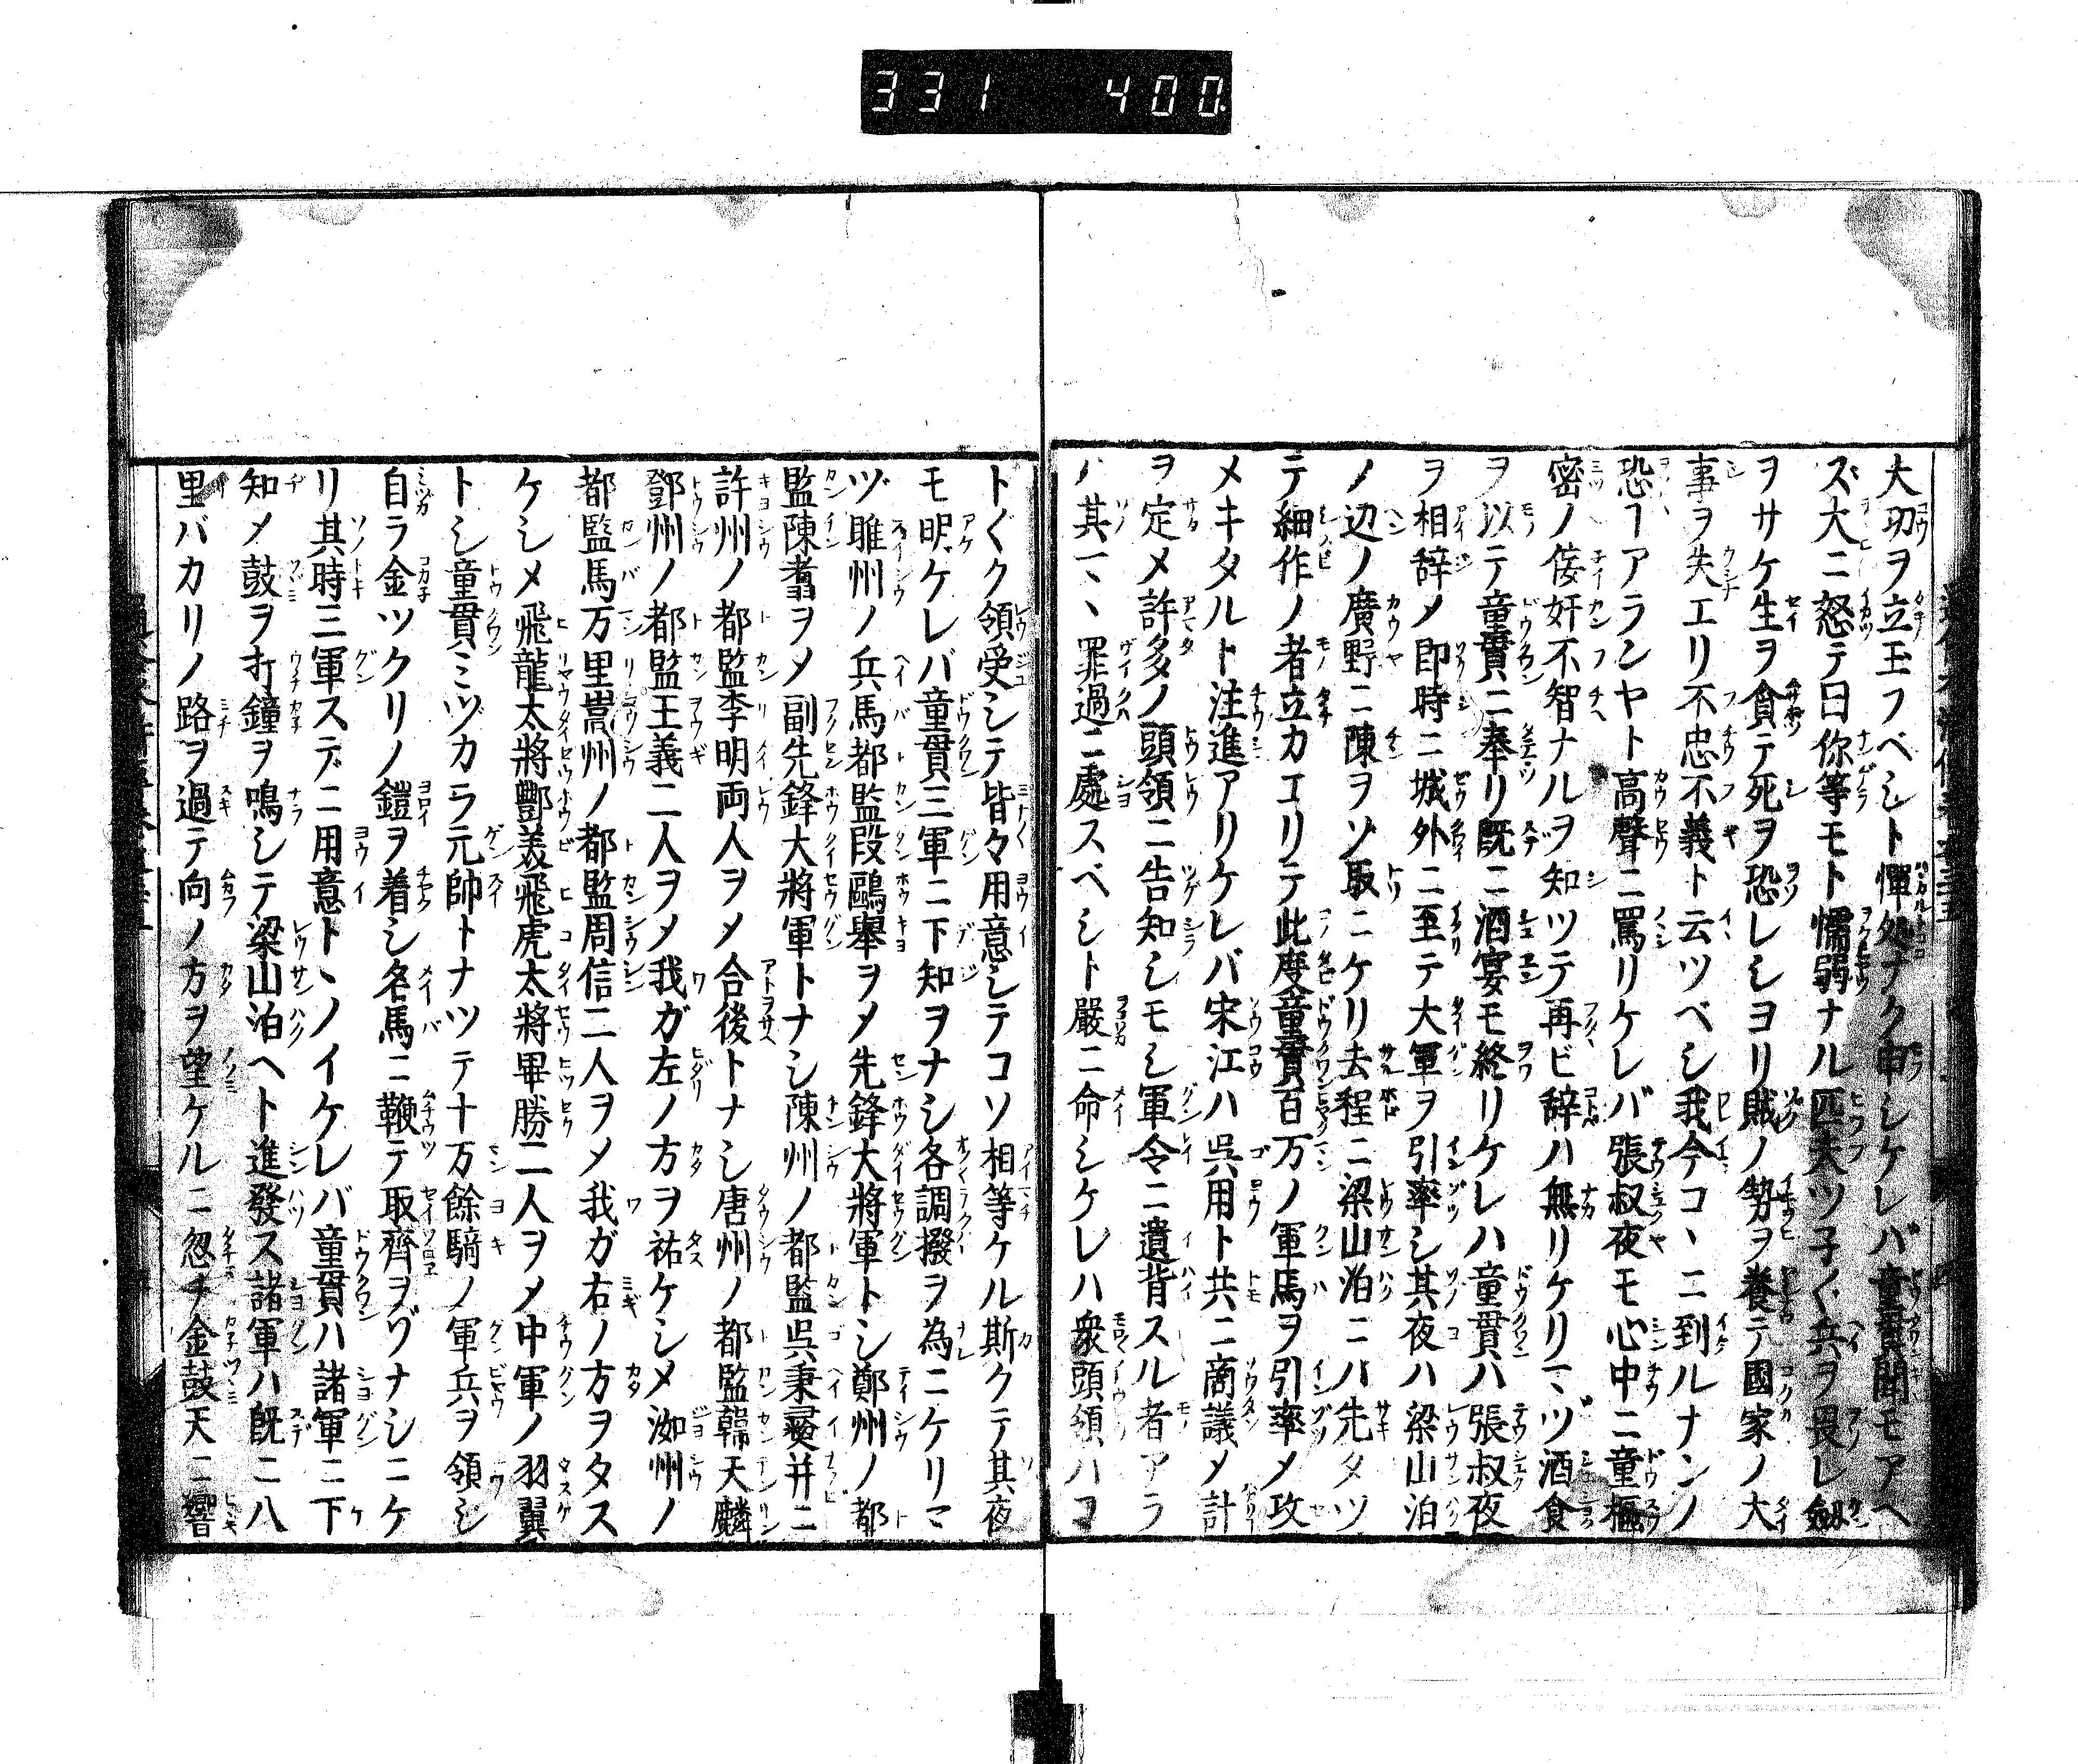 331 400
大功ヲ立玉フベシト憚処ナク申シケレバ童貫聞モアヘ
ズ大ニ怒テ曰你等モト懦弱ナル匹夫ツ子〱兵ヲ畏レ劔
ヲサケ生ヲ貪テ死ヲ恐レシヨリ賊ノ勢ヲ養テ國家ノ大
事ヲ失エリ不忠不義ト云ツベシ我今コヽニ到ルナンノ
恐ヿアランヤト高聲ニ罵リケレバ張叔夜モ心中ニ童樞
密ノ侫奸不智ナルヲ知ツテ再ビ辞ハ無リケリマヅ酒食
ヲ以テ童貫ニ奉リ既ニ酒宴モ終リケレハ童貫ハ張叔夜
ヲ相辞メ即時ニ城外ニ至テ大軍ヲ引率シ其夜ハ梁山泊
ノ辺ノ廣野ニ陳ヲソ取ニケリ去程ニ梁山泊ニハ先タツ
テ細作ノ者立カエリテ此度童貫百万ノ軍馬ヲ引率メ攻
メキタルト注進アリケレバ宋江ハ呉用ト共ニ商議メ計
ヲ定メ許多ノ頭領ニ告知シモシ軍令ニ遺背スル者アラ
ハ其一ヽ罪過ニ處スベシト嚴ニ命シケレハ衆頭領ハコ
ト〱ク領受シテ皆々用意シテコソ相等ケル斯クテ其夜
モ明ケレバ童貫三軍ニ下知ヲナシ各調撥ヲ為ニケリマ
ヅ睢州ノ兵馬都監段鵬舉ヲメ先鋒大將軍トシ鄭州ノ都
監陳翥ヲメ副先鋒大將軍トナシ陳州ノ都監呉秉彛并ニ
許州ノ都監李明両人ヲメ合後トナシ唐州ノ都監韓天麟
鄧州ノ都監王義二人ヲメ我ガ左ノ方ヲ祐ケシメ洳州ノ
都監馬万里嵩州ノ都監周信二人ヲメ我ガ右ノ方ヲタス
ケシメ飛龍太將酆義飛虎太將畢勝二人ヲメ中軍ノ羽翼
トシ童貫ミヅカラ元帥トナツテ十万餘騎ノ軍兵ヲ領シ
自ラ金ツクリノ鎧ヲ着シ名馬ニ鞭テ取齊ヲゾナシニケ
リ其時三軍スデニ用意トヽノイケレバ童貫ハ諸軍ニ下
知メ鼓ヲ打鐘ヲ鳴シテ梁山泊ヘト進發ス諸軍ハ既ニ八
里バカリノ路ヲ過テ向ノ方ヲ望ケルニ忽チ金鼓天ニ響